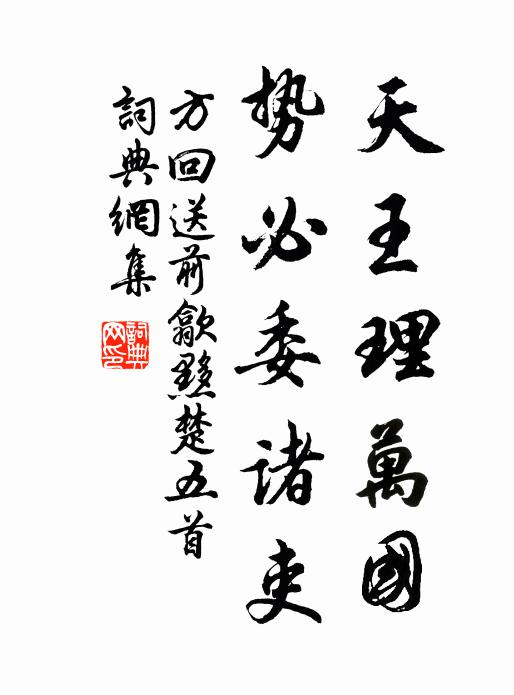 天王理萬國
势必委诸吏
方回送前歙黟楚五首
詞典網集
詞典網印